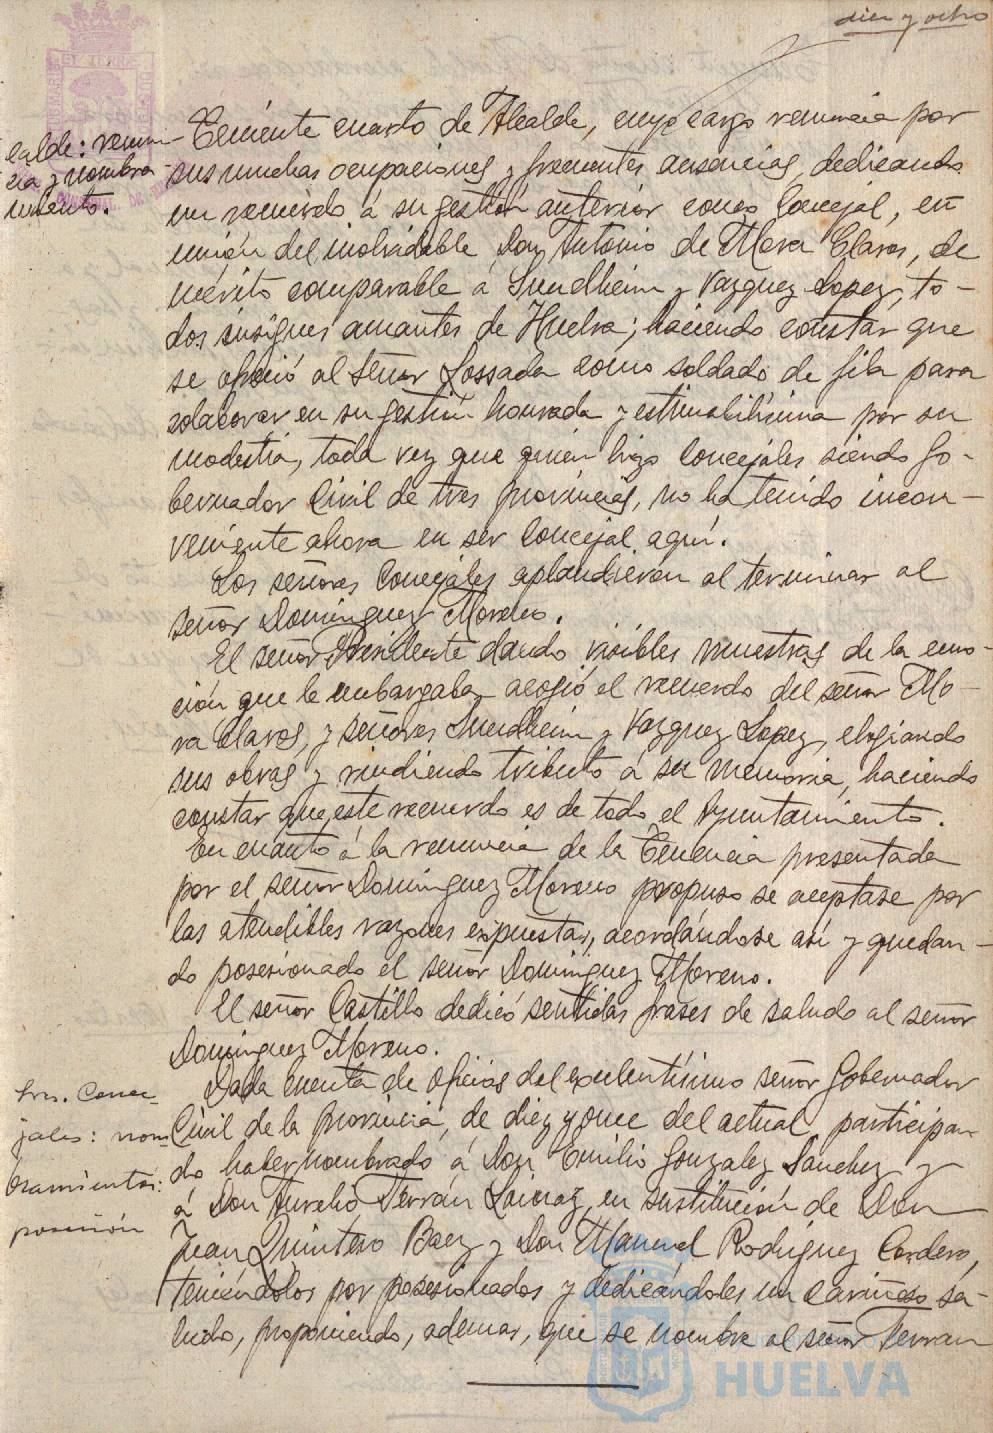 diez y ocho
calde: renun-
cia y nombra-
miento.
Teniente cuarto de Alcalde, cuyo cargo renuncia por
sus muchas ocupaciones y frecuentes ausencias, dedicando
un recuerdo á su gestión anterior como Concejal, en
unión del inolvidable Don Antonio de Mora Claros, de
mérito comparable á Sundheim y Vazquez Lopez, to-
dos insignes amantes de Huelva; haciendo constar que
se ofreció al Señor Lossada como soldado de fila para
colaborar en su gestión honrada y estimabilísima por su
modestia, toda vez que quién hizo Concejales siendo Go-
bernador Civil de tres provincias, no ha tenido incon-
veniente ahora en ser Concejal aquí.
Los señores Concejales aplaudieron al terminar al
señor Dominguez Moreno.
El señor Presidente dando visibles muestras de la emo-
ción que le embargaba, acogió el recuerdo del señor Mo-
ra Claros, y señores Sundheim y Vazquez Lopez, elogiando
sus obras y rindiendo tributo á su memoria, haciendo
constar que este recuerdo es de todo el Ayuntamiento.
En cuanto á la renuncia de la Tenencia presentada
por el señor Dominguez Moreno propuso se aceptase por
las atendibles razones expuestas, acordándose así y quedan-
do posesionado el señor Dominguez Moreno.
El señor Castillo dedicó sentidas frases de saludo al señor
Dominguez Moreno.
Sres. Conce-
jales: nom-
bramientos:
posesión
Dada cuenta de oficios del excelentísimo señor Gobernador
Civil de la provincia, de diez y once del actual, participan-
do haber nombrado á Don Emilio Gonzalez Sanchez y
á Don Aurelio Terrán en sustitución de Don
Juan Quintero Baez y Don Manuel Rodriguez Cordero,
teniéndolos por posesionados y dedicándoles un cariñoso sa-
ludo, proponiendo, ademas, que se nombre al señor Terran
HUELVA